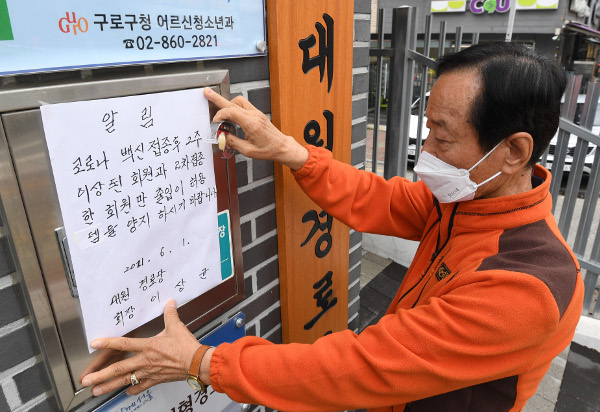 GURO 구로구청 어르신청소년과
☎02-860-2821
CU
대원경로
알 림
코로나 백신 접종후 2주
이상 된 회원과 2차접종
한 회원만 출입이 허용
됨을 양지 하시기 바랍니다
2021. 6. 1.
대원 경로당
회장 이 상 균
장
형경